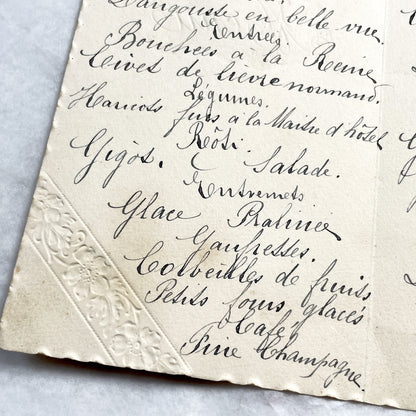 Langouste en belle vue.
Entrées.
Bouchées à la Reine
Civet de lièvre normand.
Légumes.
Haricots fins à la Maître d'hôtel
Rôti.
Gigot. Salade.
Entremets
Glace Pralinée
Gaufrettes.
Corbeilles de fruits
Petits fours glacés
Café
Fine Champagne.